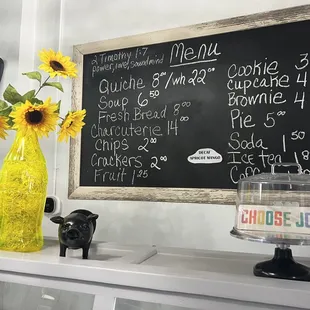 2 Timothy 1:7
power, love, sound mind
Menu
Quiche 8 00 /wh 22 00
Soup 6 50
Fresh Bread 8 00
Charcuterie 14 00
Chips 2 00
Crackers 2 00
Fruit 1 25
Cookie 3
Cupcake 4
Brownie 4
Pie 5 00
Soda 1 50
Ice tea
DECAF
APRICOT MANGO
CHOOSE JO